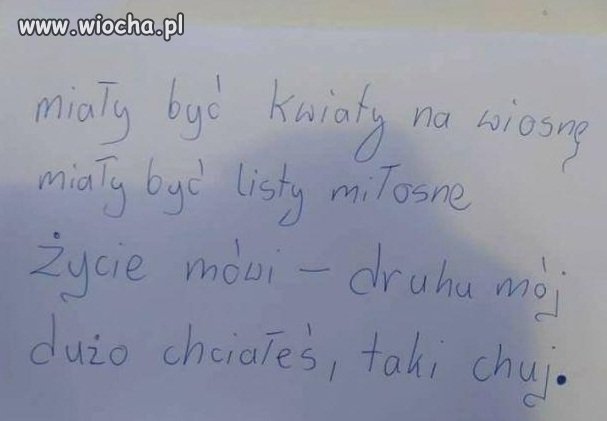 www.wiocha.pl
miały być kwiaty na wiosnę
miały być listy miłosne
życie mówi – druhu mój
dużo chciałeś, taki chuj.